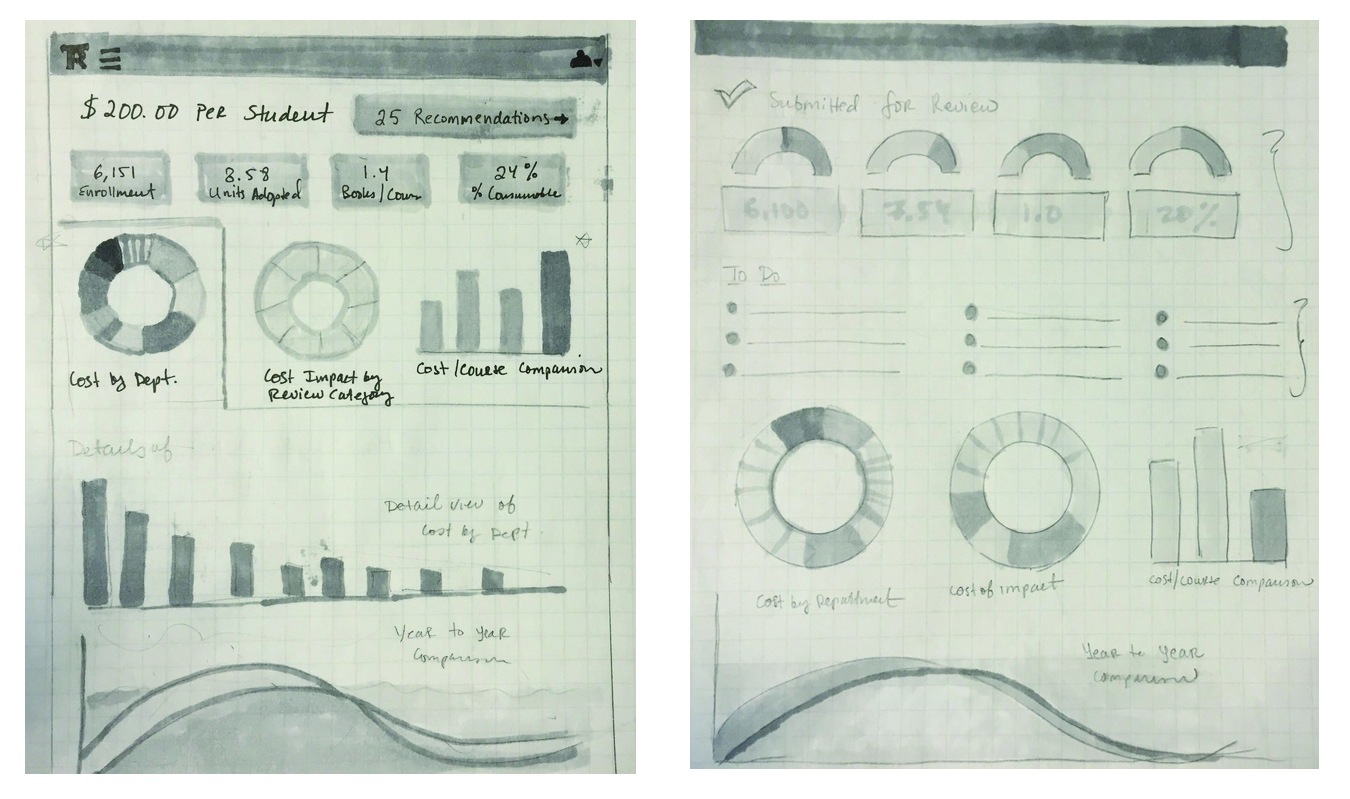 TR
$200.00 Per Student
25 Recommendations→
6,151
Enrollment
8.58
Units Adopted
1.4
Books/Cours
24%
% Consumable
Cost by Dept.
Cost Impact by
Review Category
Cost/Course Comparison
Details of
Detail view of
Cost by Dept.
Year to Year
Comparison
Submitted for Review
6,100
7.54
1.0
20%
To Do
Cost by Department
Cost of impact
Cost/Course Comparison
Year to Year
Comparison